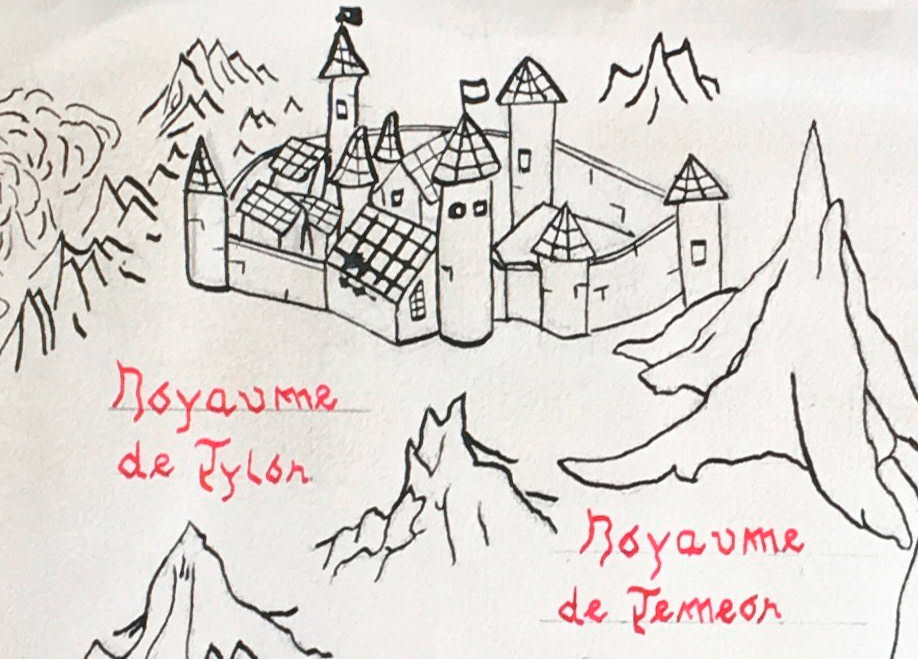 Royaume
de Tylon
Royaume
de Temeon